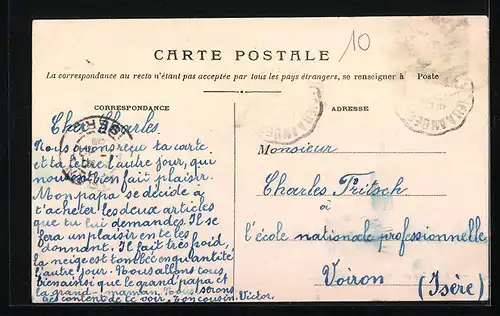 10
CARTE POSTALE
La correspondance au recto n'étant pas acceptée par tous les pays étrangers, se renseigner à la Poste
CORRESPONDANCE
Cher Charles.
Nous avons reçu ta carte
et ta lettre l'autre jour, qui
nous ont bien fait plaisir.
Mon papa se décide à
t'acheter les deux articles
que tu lui demandes. Il se
fera un plaisir en te les
donnant. Il fait très froid,
la neige est tombée en quantité
l'autre jour. Nous allons tous
bien ainsi que le grand papa et
la grand-maman. Nous serons
content de te voir. Ton cousin. Victor.
ADRESSE
Monsieur
Charles Fritsch
à
l'école nationale professionnelle
Voiron (Isère)
ISÈRE